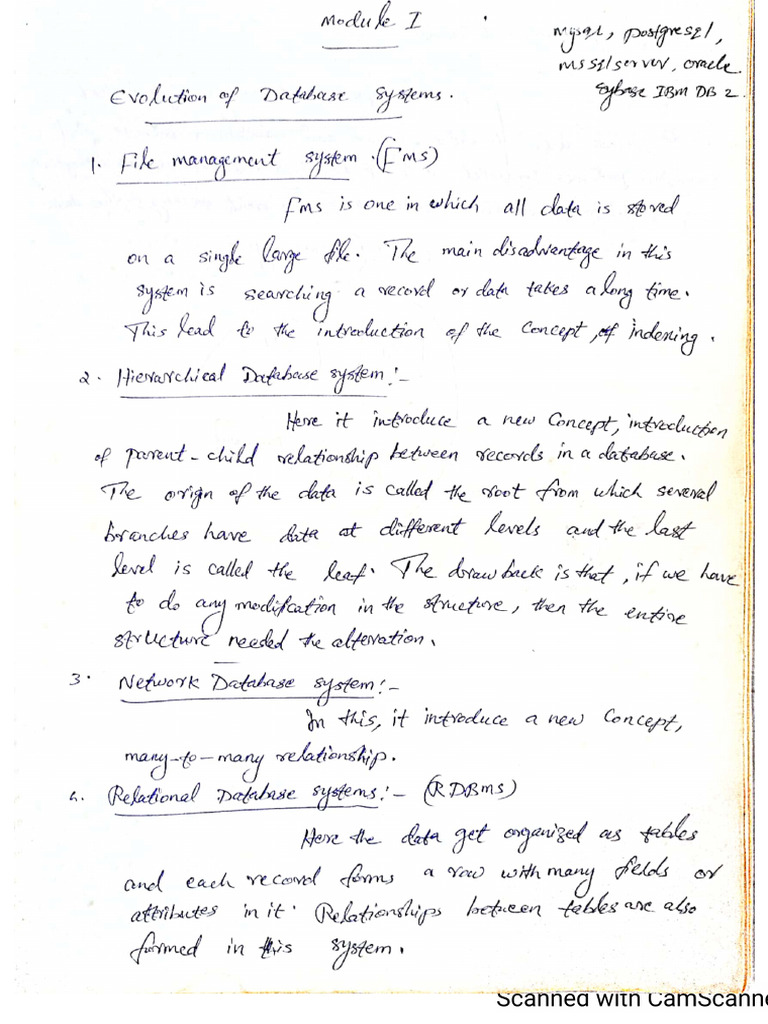 Module I
Mysql, postgresql,
mssqlserver, oracle.
Sybase IBM DB 2
Evolution of Database systems.
1. File management system. (FMS)
FMS is one in which all data is stored
on a single large file. The main disadvantage in this
system is searching a record or data takes a long time.
This lead to the introduction of the concept of indexing.
2. Hierarchical Database system:-
Here it introduce a new concept, introduction
of parent-child relationship between records in a database.
The origin of the data is called the root from which several
branches have data at different levels and the last
level is called the leaf. The drawback is that, if we have
to do any modifcation in the structure, then the entire
structure needed the alteration.
3. Network Database system:-
In this, it introduce a new concept,
many-to-many relationship.
4. Relational Database systems:- (RDBMS)
Here the data get organized as tables
and each record forms a row with many fields or
attributes in it. Relationships between tables are also
formed in this system.
Scanned with CamScanne